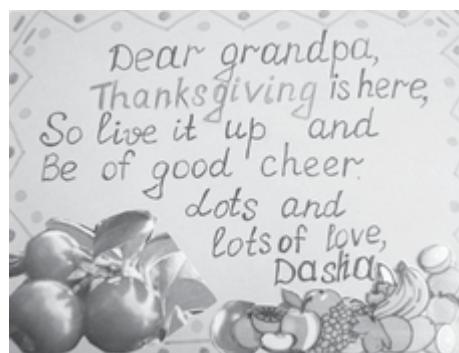 Dear grandpa,
Thanksgiving is here,
So live it up and
Be of good cheer.
Lots and
lots of love,
Dasha